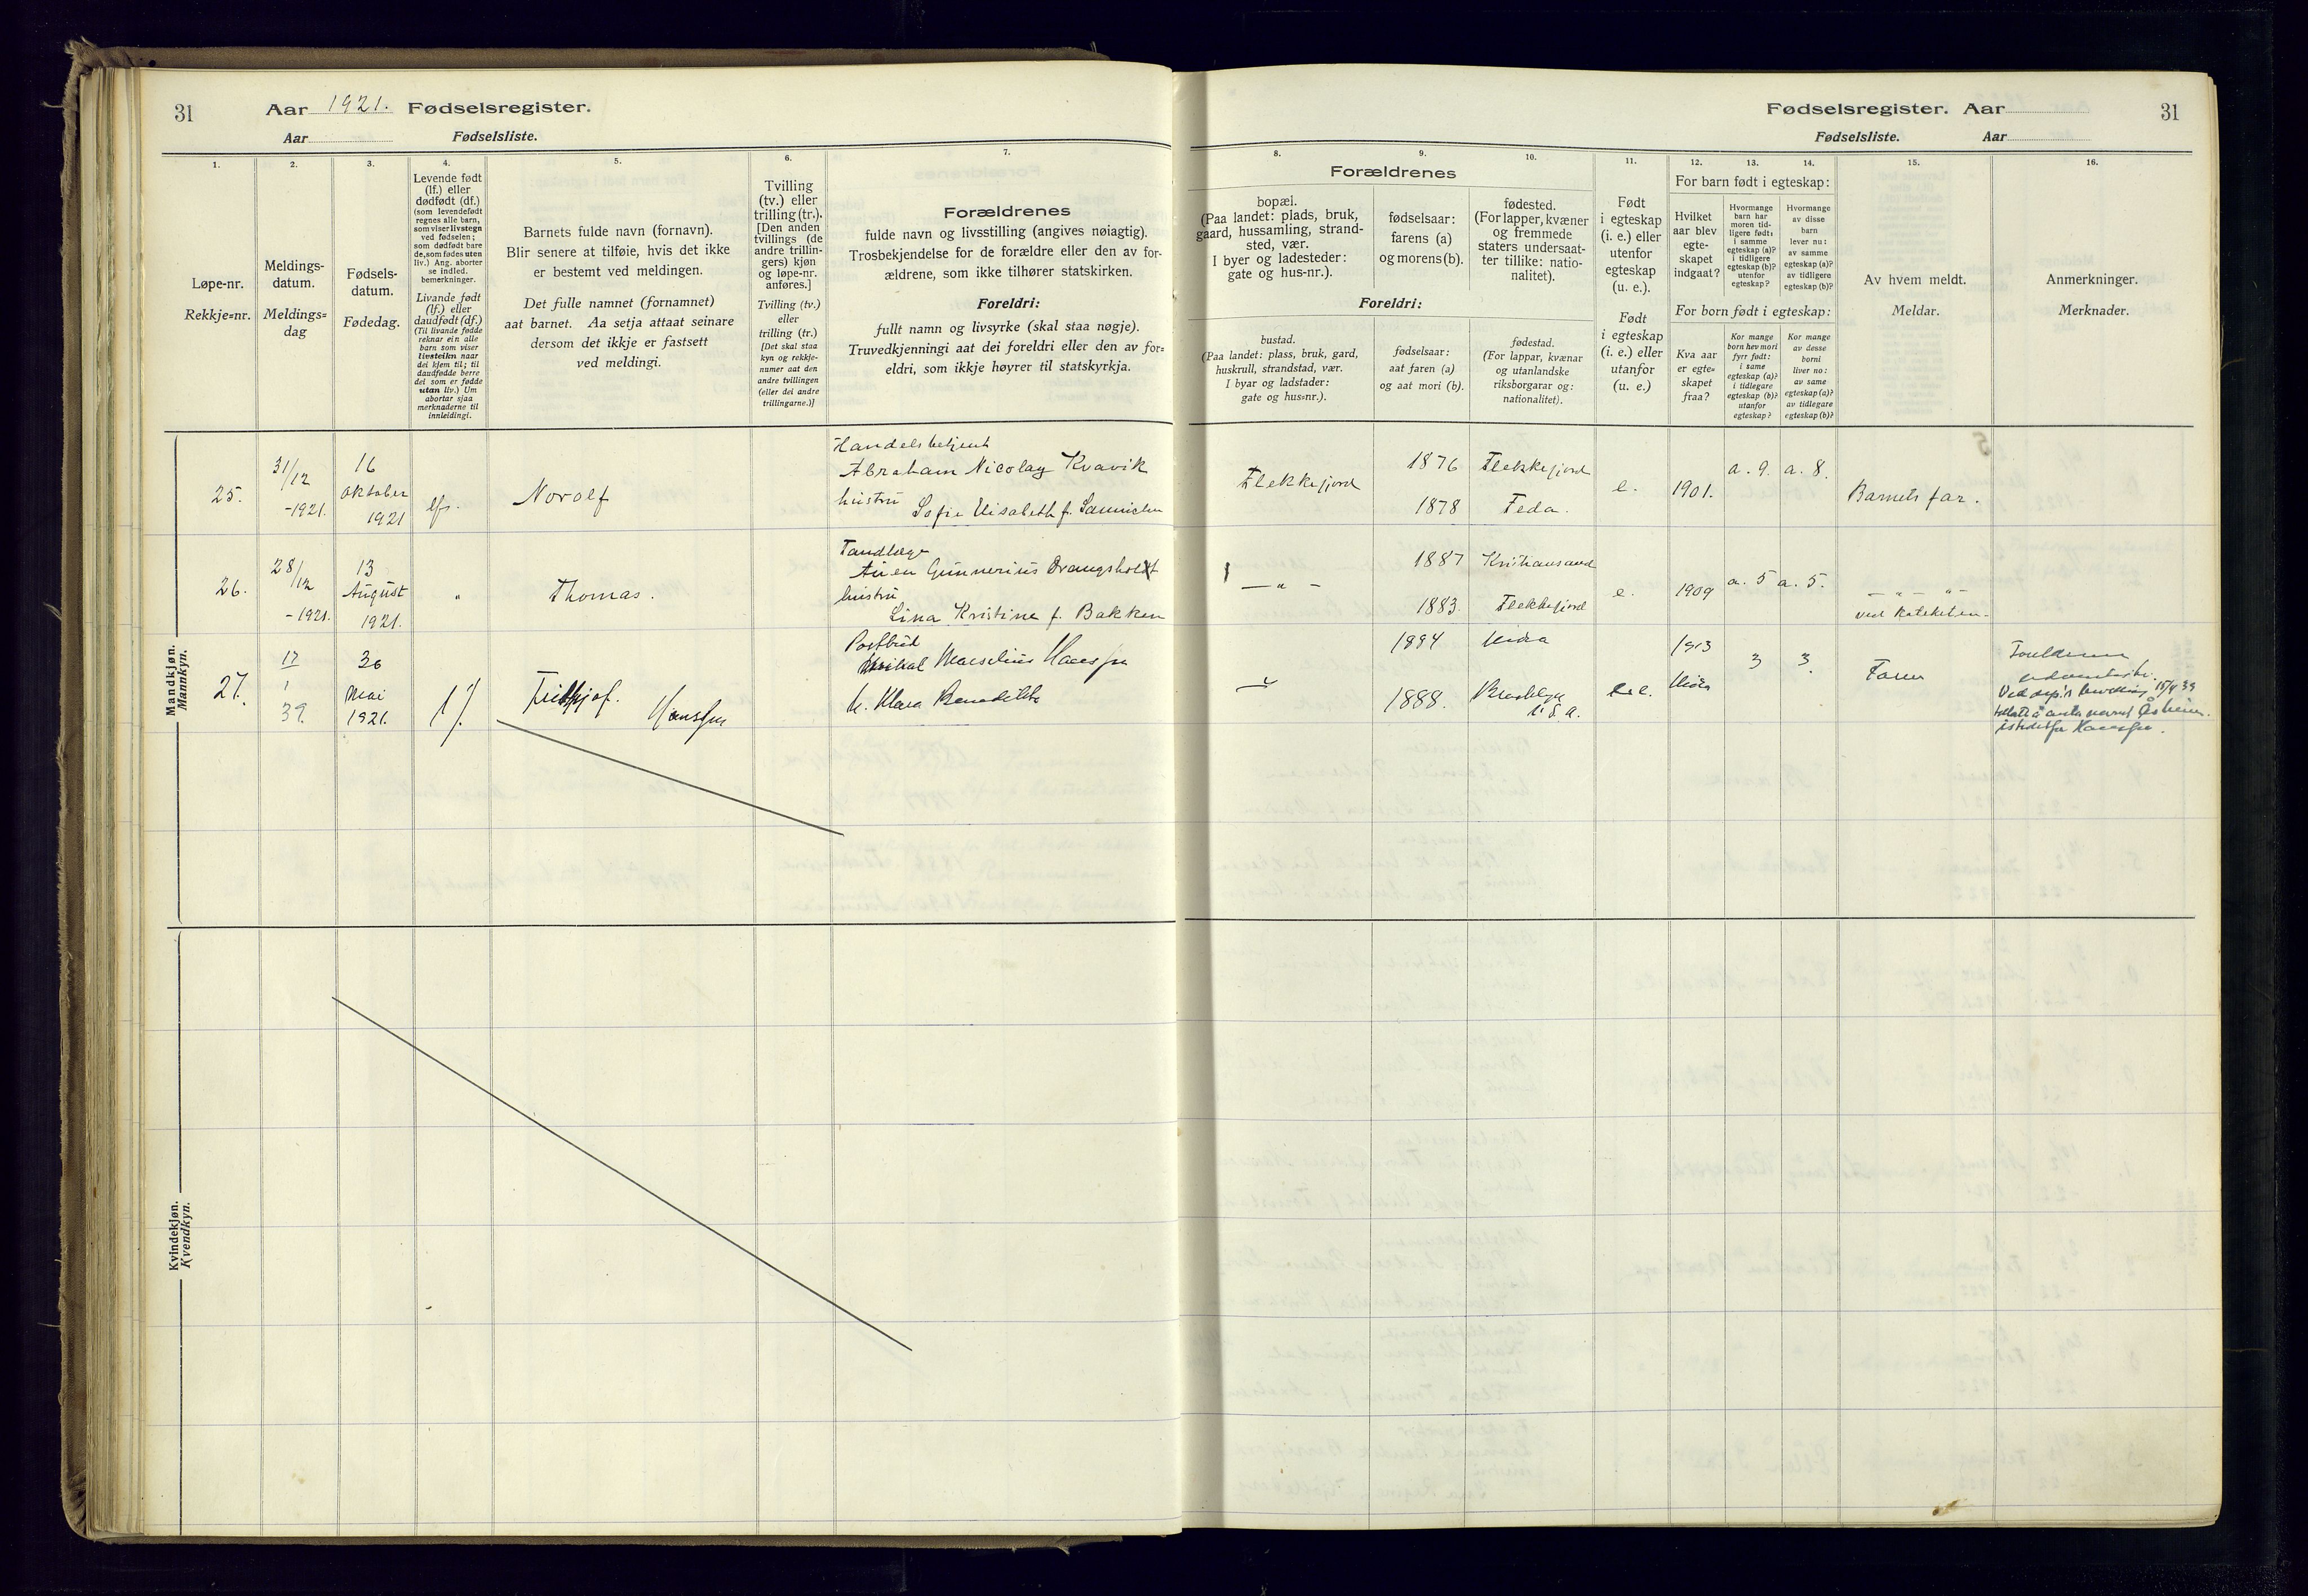 31
Aar 1921. Fødselsregister.
Aar Fødselsliste.
Fødselsregister. Aar
31
Fødselsliste. Aar
1.
Løpe-nr.
Rekkje=nr.
2.
Meldings-
datum.
Meldings=
dag
3.
Fødsels-
datum.
Fødedag.
4.
Levende født
(lf.) eller
dødfødt (df.)
(som levendefødt
regnes alle barn,
som viser livstegn
ved fødselen;
som dødfødt bare
de, som fødes uten
liv.) Ang. aborter
se indled.
bemerkninger.
Livande født
(lf.) eller
daudfødt (df.)
(Til livande fødde
reknar ein alle
barn som viser
livsteikn naar
dei kjem til; til
daudfødde berre
dei som er fødde
utan liv.) Um
abortar sjaa
merknaderne til
innleidingi.
5.
Barnets fulde navn (fornavn).
Blir senere at tilføie, hvis det ikke
er bestemt ved meldingen.
Det fulle namnet (fornamnet)
aat barnet. Aa setja attaat seinare
dersom det ikkje er fastsett
ved meldingi.
6.
Tvilling
(tv.) eller
trilling (tr.).
[Den anden
tvillings (de
andre trillin-
gers) kjøn
og løpe-nr.
anføres.]
Tvilling (tv.)
eller
trilling (tr.)
[Det skal staa
kyn og rekkje-
numer aat den
andre tvillingen
(eller dei andre
trillingarne.)]
7.
Forældrenes
fulde navn og livsstilling (angives nøiagtig).
Trosbekjendelse for de forældre eller den av for-
ældrene, som ikke tilhører statskirken.
Foreldri:
fullt namn og livsyrke (skal staa nøgje).
Truvedkjenningi aat dei foreldri eller den av for=
eldri, som ikkje høyrer til statskyrkja.
8.
Forældrenes
bopæl.
(Paa landet: plads, bruk,
gaard, hussamling, strand-
sted, vær.
I byer og ladesteder:
gate og hus-nr.).
Foreldri:
bustad.
(Paa landet: plass, bruk, gard,
huskrull, strandstad, vær.
I byar og ladstader:
gate og hus=nr.).
9.
fødselsaar:
farens (a)
og morens (b).
fødselsaar:
aat faren (a)
og aat mori (b).
10.
fødested.
(For lapper, kvæner
og fremmede
staters undersaat-
ter tillike: natio-
nalitet).
fødestad.
(For lappar, kvænar
og utanlandske
riksborgarar og:
nationalitet).
11.
Født
i egteskap
(i. e.) eller
utenfor
egteskap
(u. e.).
Født
i egteskap
(i. e.) eller
utanfor
egteskap
(u. e.)
12. 13. 14.
For barn født i egteskap:
Hvilket
aar blev
egte-
skapet
indgaat?
Hvormange
barn har
moren tid-
ligere født:
i samme
egteskap (a)?
i tidligere
egteskap (b)?
utenfor
egteskap?
Hvormange
av disse
barn
lever nu:
av samme
egteskap (a)?
av tidligere
egteskap (b)?
For born født i egteskap:
Kva aar
er egte=
skapet
fraa?
Kor mange
born hev mori
fyrr født:
i same
egteskap (a)?
i tidlegare
egteskap (b)?
utanfor
egteskap?
Kor mange
av desse
borni
liver no:
av same
egteskap (a)?
av tidlegare
egteskap (b)?
15.
Av hvem meldt.
Meldar.
16.
Anmerkninger.
Merknader.
Mandkjøn.
Mannkyn.
25.
31/12
-1921.
16
oktober
1921
Norolf
Handelsbetjent
Abraham Nicolay Kvavik
hustru
Sofie Elisabeth f.
Flekkefjord
1876
1878
Flekkefjord
Feda.
e.
1901.
a. 9. a. 8.
Barnets far.
26.
28/12
-1921.
13
August
1921.
"
Thomas.
Tandlæge
Gunnerius Drangsholt
hustru
Lina Kristine f. Bakken
— " —
1887
1883.
Kristiansand
Flekkefjord
e.
1909
a. 5 a. 5.
— " — " —
ved Kateketen
27.
17
1
39.
30
Mai
1921.
Fridtjof. Hanssen
Postbud
Mikal Marselius Hanssen
h. Klara Benedikte
1884
1888.
Hidra
Brooklyn
U. S. A.
e.
1913
Hidra
3
3.
Faren
Foreldrene
15/4 39
navnet Åsheim
istedetfor Hanssen.
Kvindekjøn.
Kvendkyn.